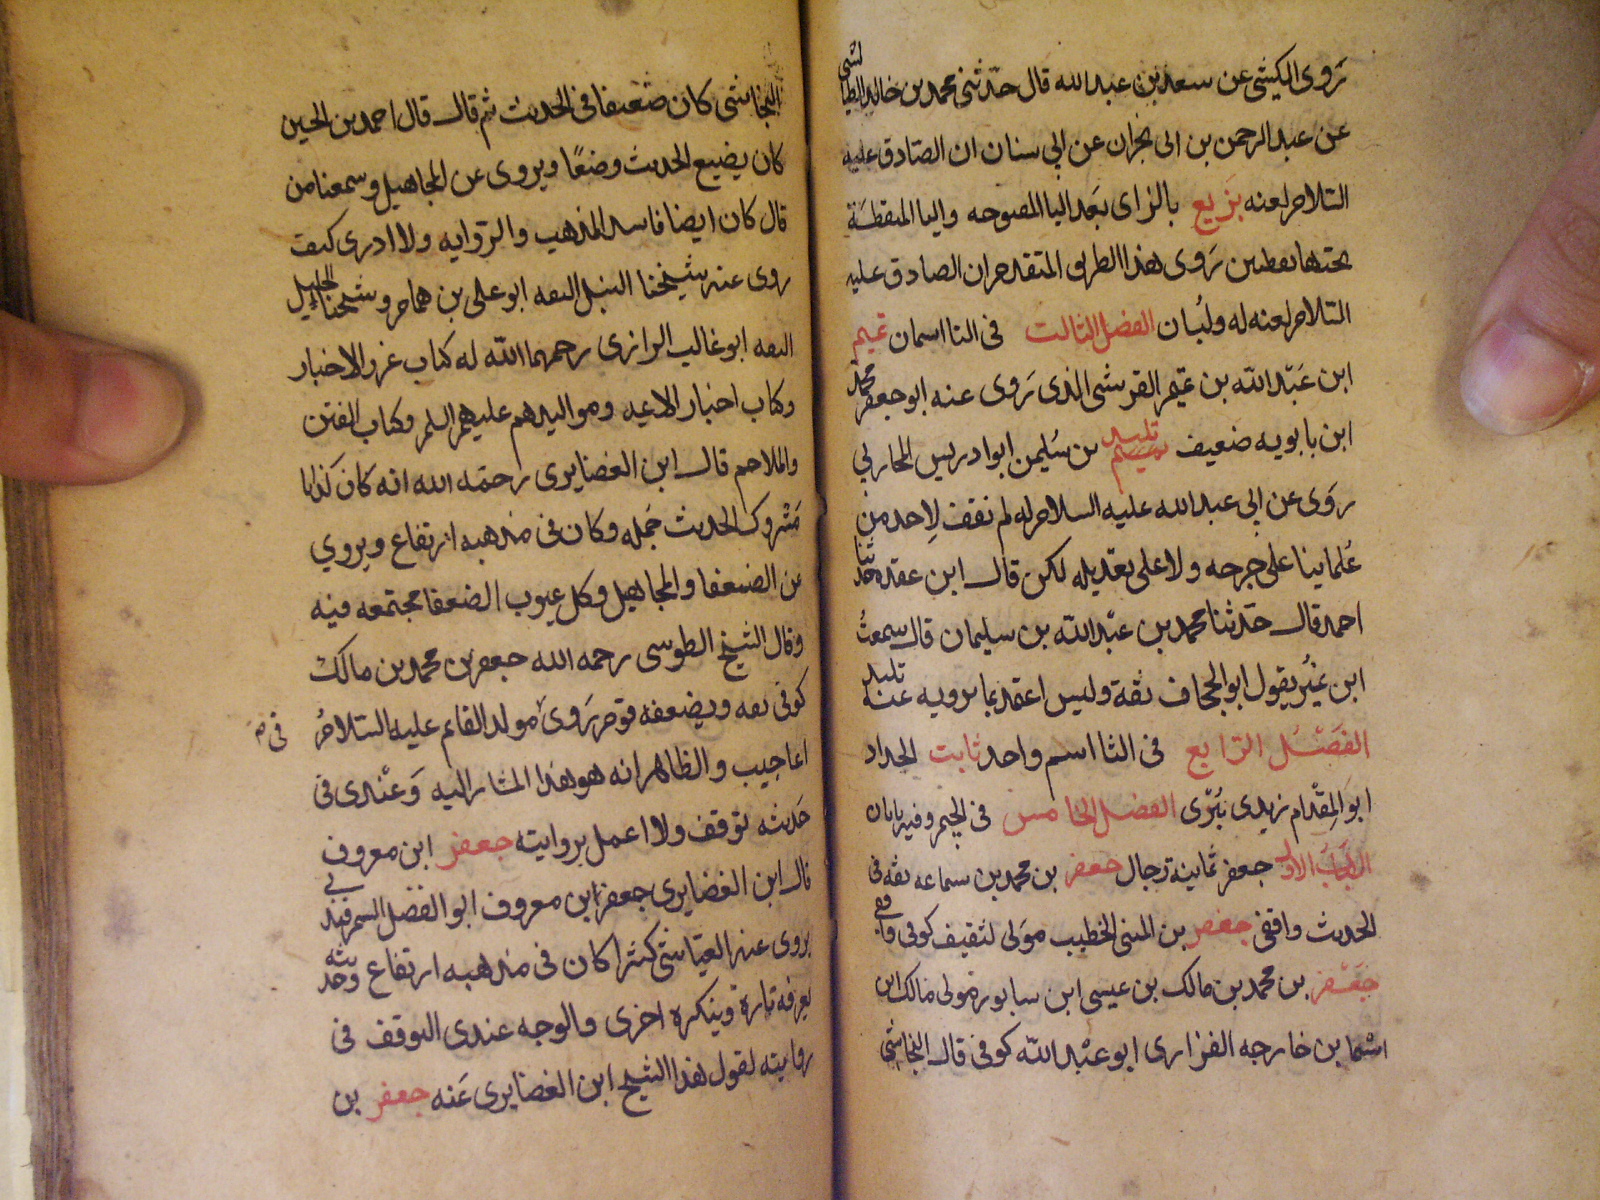 روى الكشي عن سعد بن عبد الله قال حدثني محمد بن خالد الطيالسي
عن عبد الرحمن بن ابي نجران عن ابي سنان ان الصادق عليه
السلام لعنه بزيع بالزاى بعد البا المفتوحه واليا المنقطة
تحتها نقطتين روى هذا الطريق المتقدم ان الصادق عليه
السلام لعنه له ولبان الفصل الثالث فى التا اسمان تميم
ابن عبد الله بن تميم القرشي الذى روى عنه ابو جعفر محمد
ابن بابويه ضعيف تليد بن سليمن ابو ادريس المحاربي
روى عن ابي عبد الله عليه السلام له لم نقف لاحد من
علماينا على جرحه ولا على تعديله لكن قال ابن عقده حدثنا
احمد قال حدثنا محمد بن عبد الله بن سليمان قال سمعت
ابن نمير يقول ابو الجحاف ثقة وليس اعتد بما يرويه عنه تليد
الفصل الرابع فى الثا اسم واحد ثابت الحداد
ابو المقدام زيدى بترى الفصل الخامس فى الجيم وفيه بابان
الباب الاول جعفر ثمانية رجال جعفر بن محمد بن سماعه ثقه فى
الحديث واقفى جعفر بن المثنى الخطيب مولى لثقيف كوفى واقفي
جعفر بن محمد بن مالك بن عيسى ابن سابور مولى مالك ابن
اسما بن خارجه الفزارى ابو عبد الله كوفى قال النجاشي
النجاشى كان ضعيفا فى الحديث ثم قال قال احمد بن الحسين
كان يضيع الحديث وضعا ويروى عن المجاهيل وسمعنا من
قال كان ايضا فاسد المذهب والروايه ولا ادرى كيف
روى عنه شيخنا النبيل الثقه ابو على بن همام وشيخنا الجليل
الثقه ابو غالب الرازى رحمهما الله له كتاب غرر الاخبار
وكتاب اخبار الائمه ومواليدهم عليهم السلم وكتاب الفتن
والملاحم قال ابن الغضايرى رحمه الله انه كان كذابا
متروك الحديث جمله وكان فى مذهبه ارتفاع ويروي
عن الضعفا والمجاهيل وكل عيوب الضعفا مجتمعه فيه
وقال الشيخ الطوسى رحمه الله جعفر بن محمد بن مالك
كوفى ثقه ويضعفه قوم روى مولد القايم عليه السلام
اعاجيب والظاهر انه هو هذا المشار اليه وعندى فى
حديثه توقف ولا اعمل بروايته جعفر ابن معروف
قال ابن الغضايرى جعفر ابن معروف ابو الفضل السمرقندي
يروى عنه العياشى كثيرا كان فى مذهبه ارتفاع وحديثه
يعرفه تارة وينكره اخرى والوجه عندى التوقف فى
روايته لقول هذا الشيخ ابن الغضايرى عنه جعفر بن